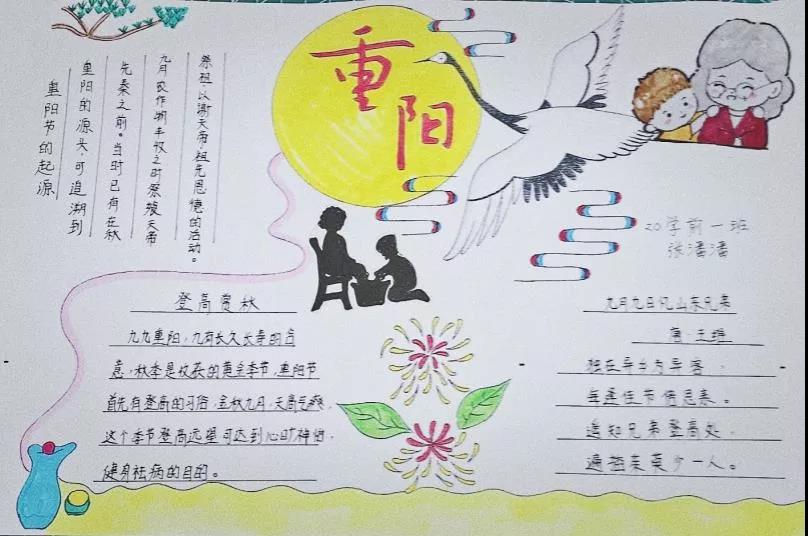 重阳
重阳节的起源
重阳的源头,可追溯到
先秦之前。当时已有在秋
九月农作物丰收之时祭飨天帝
祭祖,以谢天帝,祖先恩德的活动。
20学前一班
张潘潘
登高赏秋
九九重阳,九有长久长寿的含
意,秋季是收获的黄金季节,重阳节
首先有登高的习俗,金秋九月,天高气爽,
这个季节登高远望可达到心旷神怡,
健身祛病的目的。
九月九日忆山东兄弟
唐·王维
独在异乡为异客,
每逢佳节倍思亲。
遥知兄弟登高处,
遍插茱萸少一人。